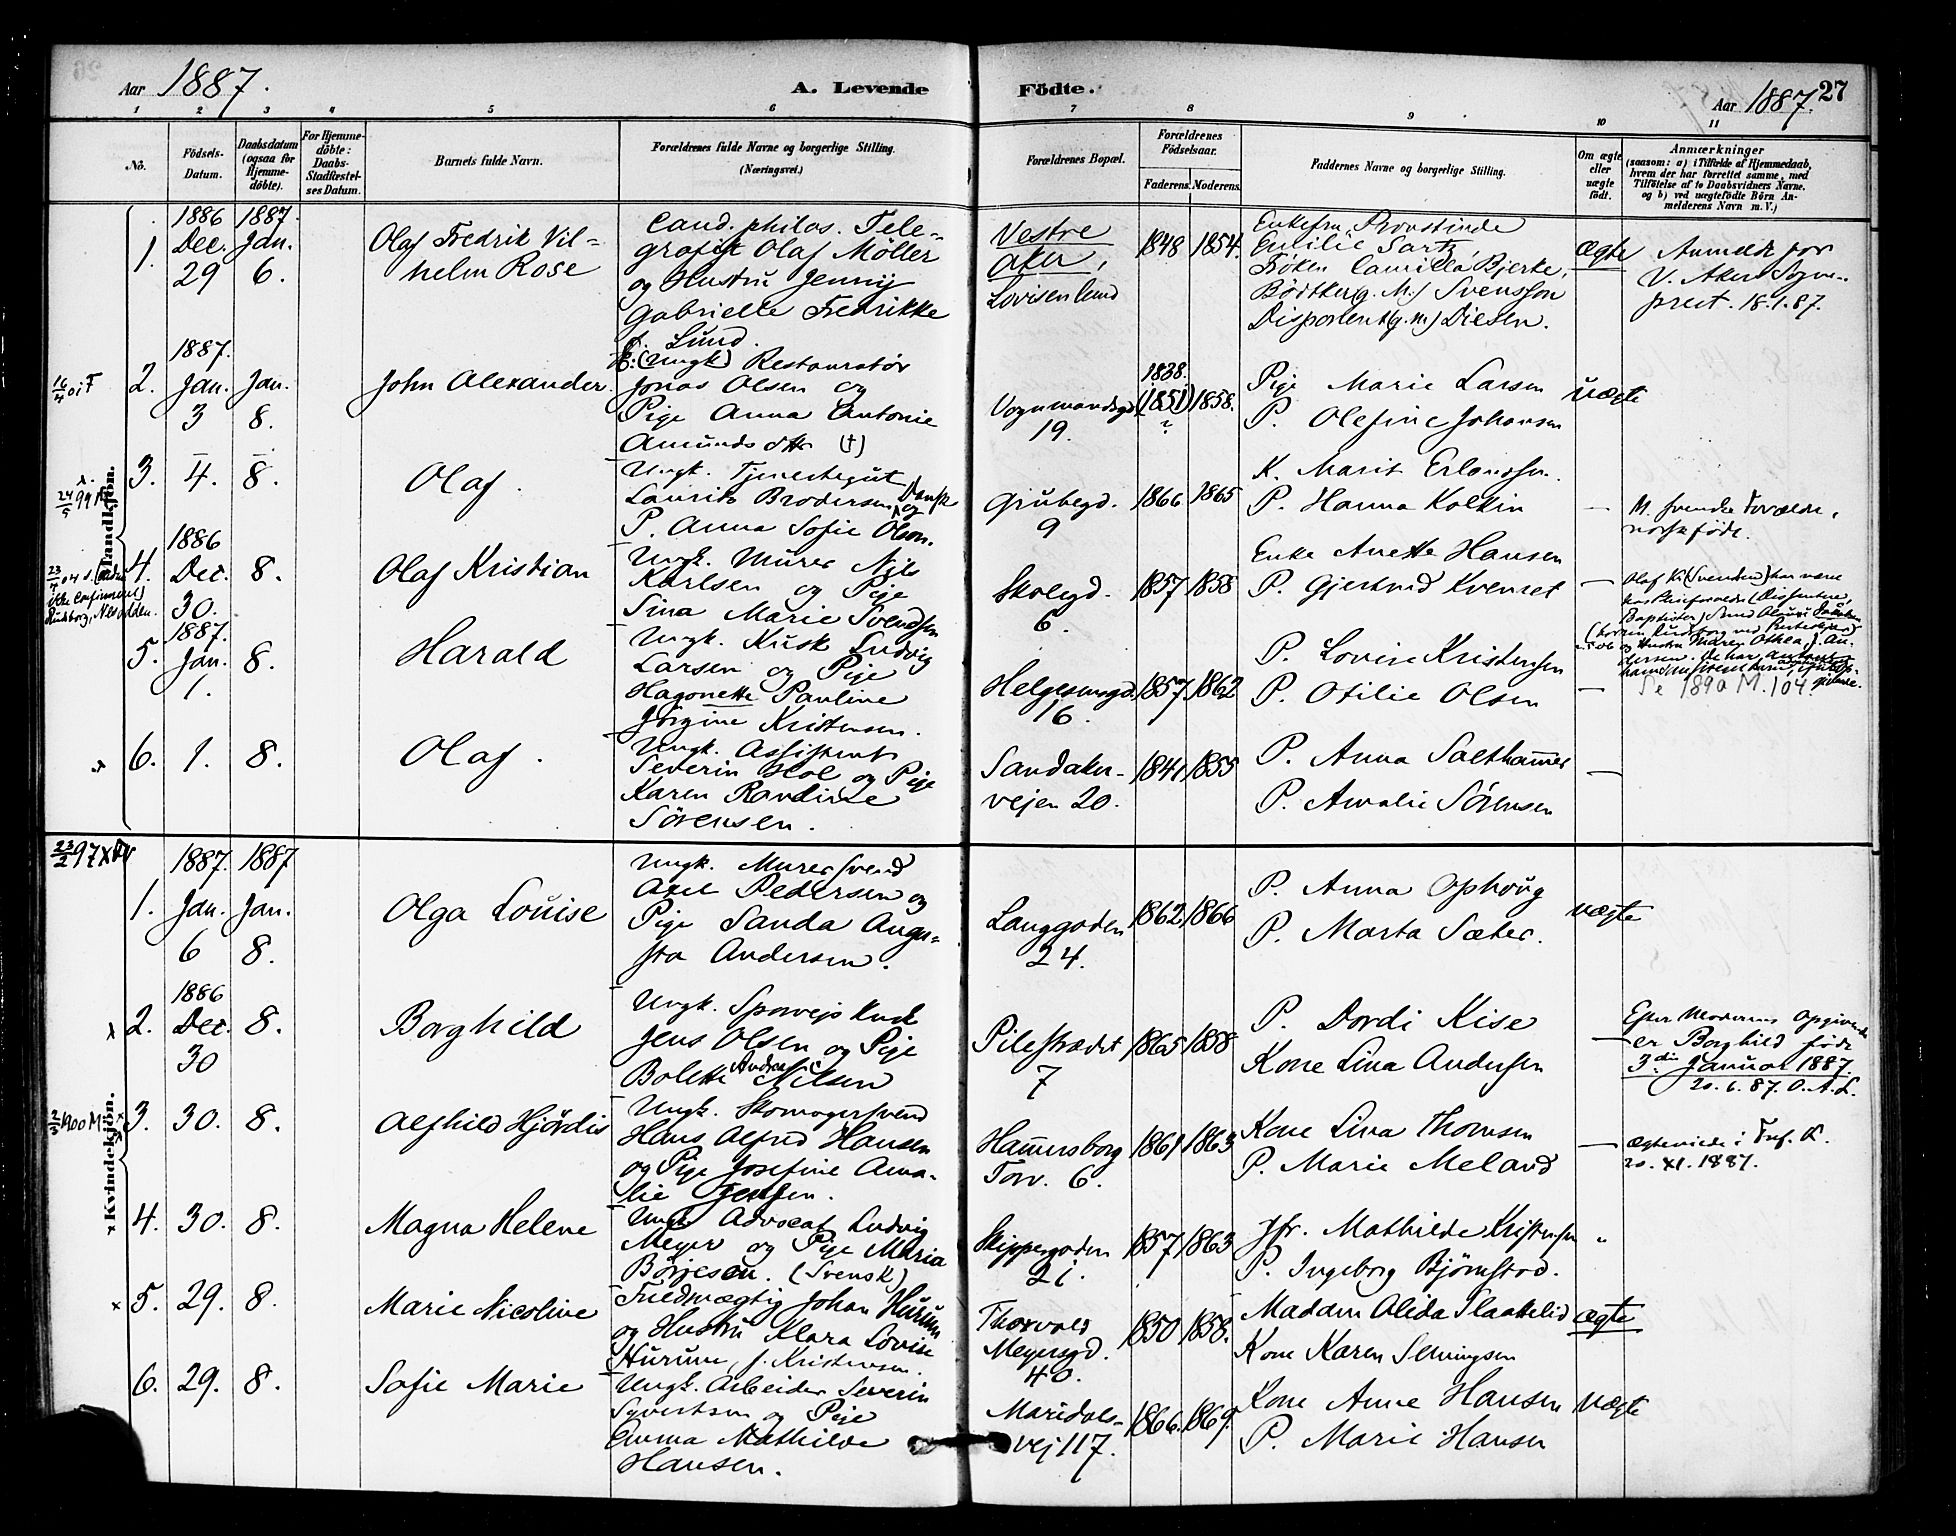 Aar 1887.
A. Levende Födte.
Aar 1887. 27
1 2 3 4 5 6 7 8 9 10 11
No.
Födsels-Datum.
Daabsdatum (ogsaa for Hjemme-döbte).
For Hjemme-döbte: Daabs-Stadfæstel-ses Datum.
Barnets fulde Navn.
Forældrenes fulde Navne og borgerlige Stilling. (Næringsvei.)
Forældrenes Bopæl.
Forældrenes Födselsaar.
Faderens. Moderens.
Faddernes Navne og borgerlige Stilling.
Om ægte eller uægte födt.
Anmærkninger
(saasom: a) i Tilfælde af Hjemmedaab, hvem der har forrettet samme, med Tilföielse af to Daabsvidners Navne, og b) ved uægtefödte Börn An-melderens Navn m. V.)
Mandkjön.
1. 1886 Dec. 29 1887. Jan. 6.
Olaf Fredrik Vil-
helm Rose
Cand. philos. Tele-
grafist Olaf Möller
og Hustru Jenny
Gabrielle Fredrikke
f. Lund.
Vestre
Aker,
Lovisenlund
1848 1854.
Enkefru Provstinde
Emilie Sartz,
Fröken Camilla Bjerke,
Bödtker (g. M.) Svensson
Disponent (g. M.) Diesen.
ægte
Anmeldt for
V. Aker Sogne-
prest. 18.1.87.
16/4 01 F
2. 1887. Jan. 3 Jan. 8.
John Alexander.
(Ungk) Restauratör
Jonas Olsen og
Pige Anna Antonie
Amundsdtr (†)
Vognmandsgd.
19.
1838. (1851) ? 1858.
Pige Marie Larsen
P. Olefine Johansen
uægte
24/5 99
3. 4. 8.
Olaf.
Ungk. Tjenestegut
Laurits Brodersen Dansk og
P. Anna Sofie Olson.
Grubegd.
9
1866 1865
K. Marit Erlandsen.
P. Hanna Kolkin
—
M. svenske Forældre,
norsk födt.
23/4 04
Nesodden.
4. 1886 Dec. 30. 8.
Olaf Kristian
Ungk. Murer Nils
Karlsen og Pige
Sina Marie Svendsen
Skolegd.
6.
1857 1858
Enke Anette Hansen
P. Gjertrud Kvenset
—
Olaf Kr. (Svendsen) har været
5. 1887. Jan. 1. 8.
Harald
Ungk. Kusk Ludvig
Larsen og Pige
Hagonette Pauline
Jörgine Kristensen.
Helgesensgd.
16.
1857 1862
P. Lovise Kristensen
P. Otilie Olsen
—
Se 1890 M. 104
6. 1. 8.
Olaf.
Ungk. Assistent
Severin Hol og Pige
Karen Randine
Sörensen.
Sandaker-
vejen 20.
1841 1855
P. Anna Salthammer
P. Amalie Sörensen
—
23/2 97
Kvindekjön.
1. 1887. Jan. 6 1887 Jan. 8.
Olga Louise
Ungk. Murersvend
Axel Pedersen og
Pige Sanda Augu-
sta Andersen.
Langgaden
24.
1862 1866
P. Anna Ophoug
P. Marta Sæter.
uægte
2. 1886 Dec. 30 8.
Borghild
Ungk. Sporvejs Kusk
Jens Olsen og Pige
Bolette Nilsen
Pilestrædet
7
1865 1858
P. Dordi Kise
Kone Lina Andersen
—
Efter Moderens Opgivende
er Borghild født
3die Januar 1887.
20.6.87. O.A.L.
2/3 1900 M
3. 30. 8.
Alfhild Hjördis
Ungk. Skomagersvend
Hans Alfred Hansen
og Pige Josefine Ama-
lie Jensen.
Hammersborg
Torv. 6.
1861 1863
Kone Lina Thomsen
P. Marie Meland
—
ægteviede i Tref. K.
20. XI. 1887.
4. 30. 8.
Magna Helene
Ungk. Advocat Ludvig
Meyer og Pige Maria
Börjeson. (Svensk)
Skippergaden
21.
1857 1863
Jfr. Mathilde Kristensen
P. Ingeborg Björnstad.
"
5. 29. 8.
Marie Nicoline
Fuldmægtig Johan Hurum
og Hustru Klara Lovise
Hurum, f. Kristensen.
Thorvald
Meyersgd.
40.
1850 1858.
Madam Alida Slaattelid
Kone Karen Semingsen
ægte
6. 29. 8.
Sofie Marie
Ungk. Arbeider Severin
Syvertsen og Pige
Emma Mathilde
Hansen.
Maridals-
vej 117.
1866. 1869.
Kone Anne Hansen
P. Marie Hansen
uægte